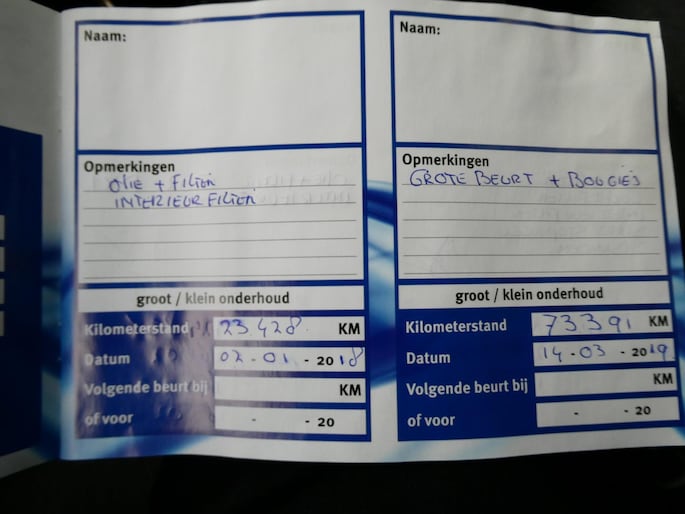 Naam:
Opmerkingen
OLIE + FILTER
INTERIEUR FILTER
groot / klein onderhoud
Kilometerstand 23 428 KM
Datum 02 - 01 - 2018
Volgende beurt bij KM
of voor - - 20
Naam:
Opmerkingen
GROTE BEURT + BOUGIES
groot / klein onderhoud
Kilometerstand 73391 KM
Datum 14 - 03 - 2019
Volgende beurt bij KM
of voor - - 20